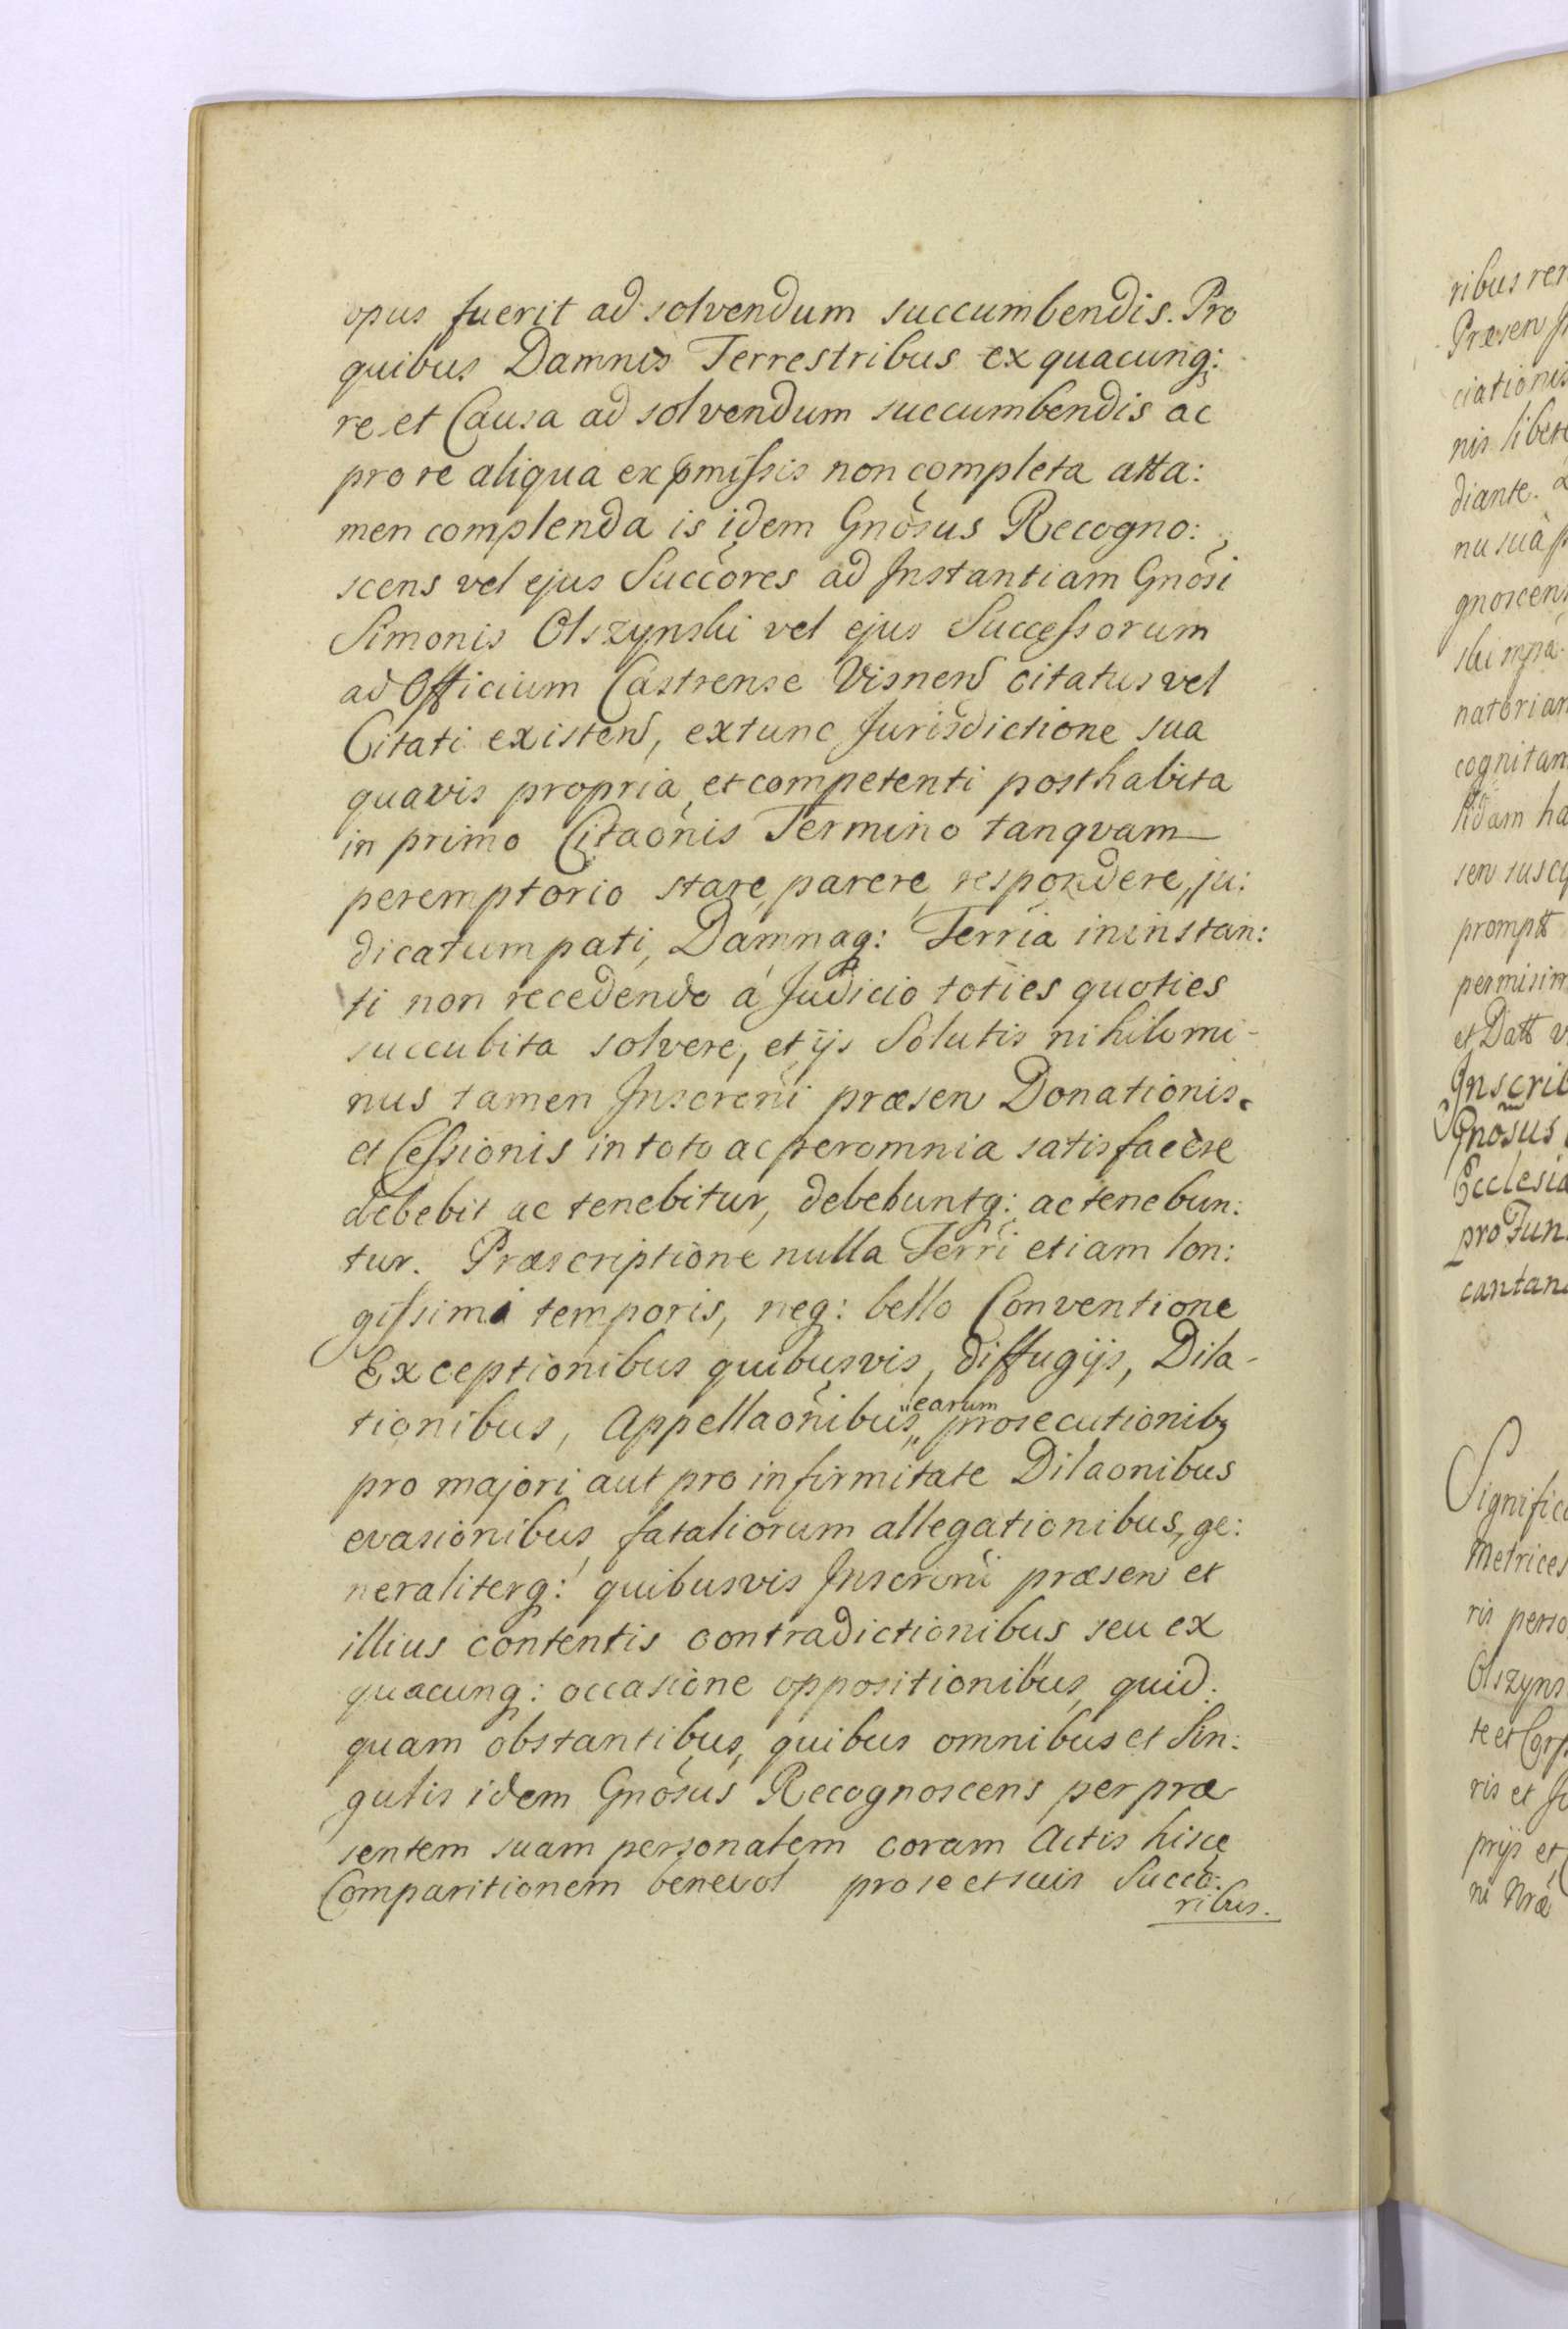 opus fuerit ad solvendum succumbendis. Pro
quibus Damnis Terrestribus ex quacunq:
re et Causa ad solvendum succumbendis ac
pro re aliqua ex pmissis non completa atta:
men complenda is idem Gnosus Recogno:
scens vel ejus Succores ad Instantiam Gnosi
Simonis Olszynski vel ejus Successorum
ad Officium Castrense Visnen citatus vel
Citati existen, extunc Jurisdictione sua
quavis propria et competenti posthabita
in primo Citaonis Termino tanqvam
peremptorio stare, parere, respondere, ju:
dicatum pati, Damnaq: Terria in instan:
ti non recedendo á Judicio toties quoties
succubita solvere, et ijs Solutis nihilomi-
nus tamen Inscreni præsen Donationis
et Cessionis in toto ac per omnia satisfacere
debebit ac tenebitur, debebuntq: ac tenebun:
tur. Præscriptione nulla Terri etiam lon:
gissimi temporis, neq: bello Conventione
Exceptionibus quibusvis, diffugijs, Dila-
tionibus, Appellaonibus, earum prosecutionib9
pro majori aut pro infirmitate Dilaonibus
evasionibus, fataliorum allegationibus, ge:
neraliterq: quibusvis Inscroni præsen et
illius contentis contradictionibus seu ex
quacunq: occasione oppositionibus, quid:
quam obstantibus, quibus omnibus et Sin:
gulis idem Gnosus Recognoscens per præ
sentem suam personalem coram Actis hisce
Comparitionem benevol pro se et suis Succo:
ribus.
ribus ren
Præsen
ciationis
nis libere
diante.
nu suâ
gnoscen
ski
natorian
cognitam
ha
sen susc
promptt
permisim
et Datt
Inscrib
Gnosus
Ecclesia
pro Fun
cantan
Signific
Metrices
ris perso
Olszyns
te et
ris et
prijs et
ni Nræ